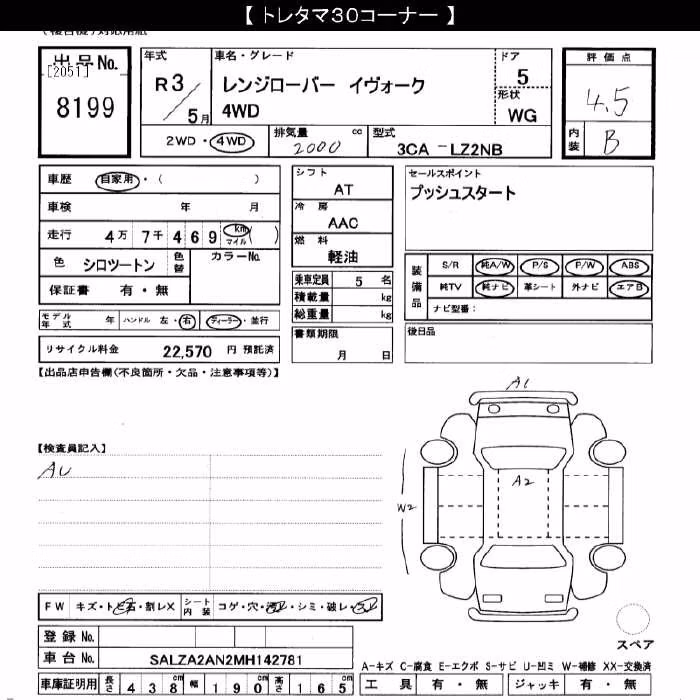 【 トレタマ30コーナー 】
(複合機)対応用紙
出品No.
[2051]
8199
年式
R3/5月
車名・グレード
レンジローバー イヴォーク
4WD
ドア
5
形状
WG
評価点
4.5
内装
B
2WD・4WD
排気量
2000 cc
型式
3CA -LZ2NB
車歴 自家用・( )
車検 年 月
走行 4万 7千 4 6 9 km マイル ( )
色 シロツートン 色替 カラーNo.
保証書 有・無
モデル年式 年 ハンドル 左・右 ディーラー・並行
リサイクル料金 22,570 円 預託済
シフト
AT
冷房
AAC
燃料
軽油
乗車定員 5 名
積載量 kg
総重量 kg
書類期限
月 日
セールスポイント
プッシュスタート
装備品
S/R 純A/W P/S P/W ABS
純TV 純ナビ 革シート 外ナビ エアB
ナビ型番:
後日品
【出品店申告欄(不良箇所・欠品・注意事項等)】
【検査員記入】
AU
A1
A2
W2
FW キズ・ト・割レX シート内装 コゲ・穴・・シミ・破レ・
登録No.
車台No. SALZA2AN2MH142781
車庫証明用 長さ 438cm 幅 190cm 高さ 165cm
スペア
A-キズ C-腐食 E-エクボ S-サビ U-凹ミ W-補修 XX-交換済
工具 有・無 ジャッキ 有・無